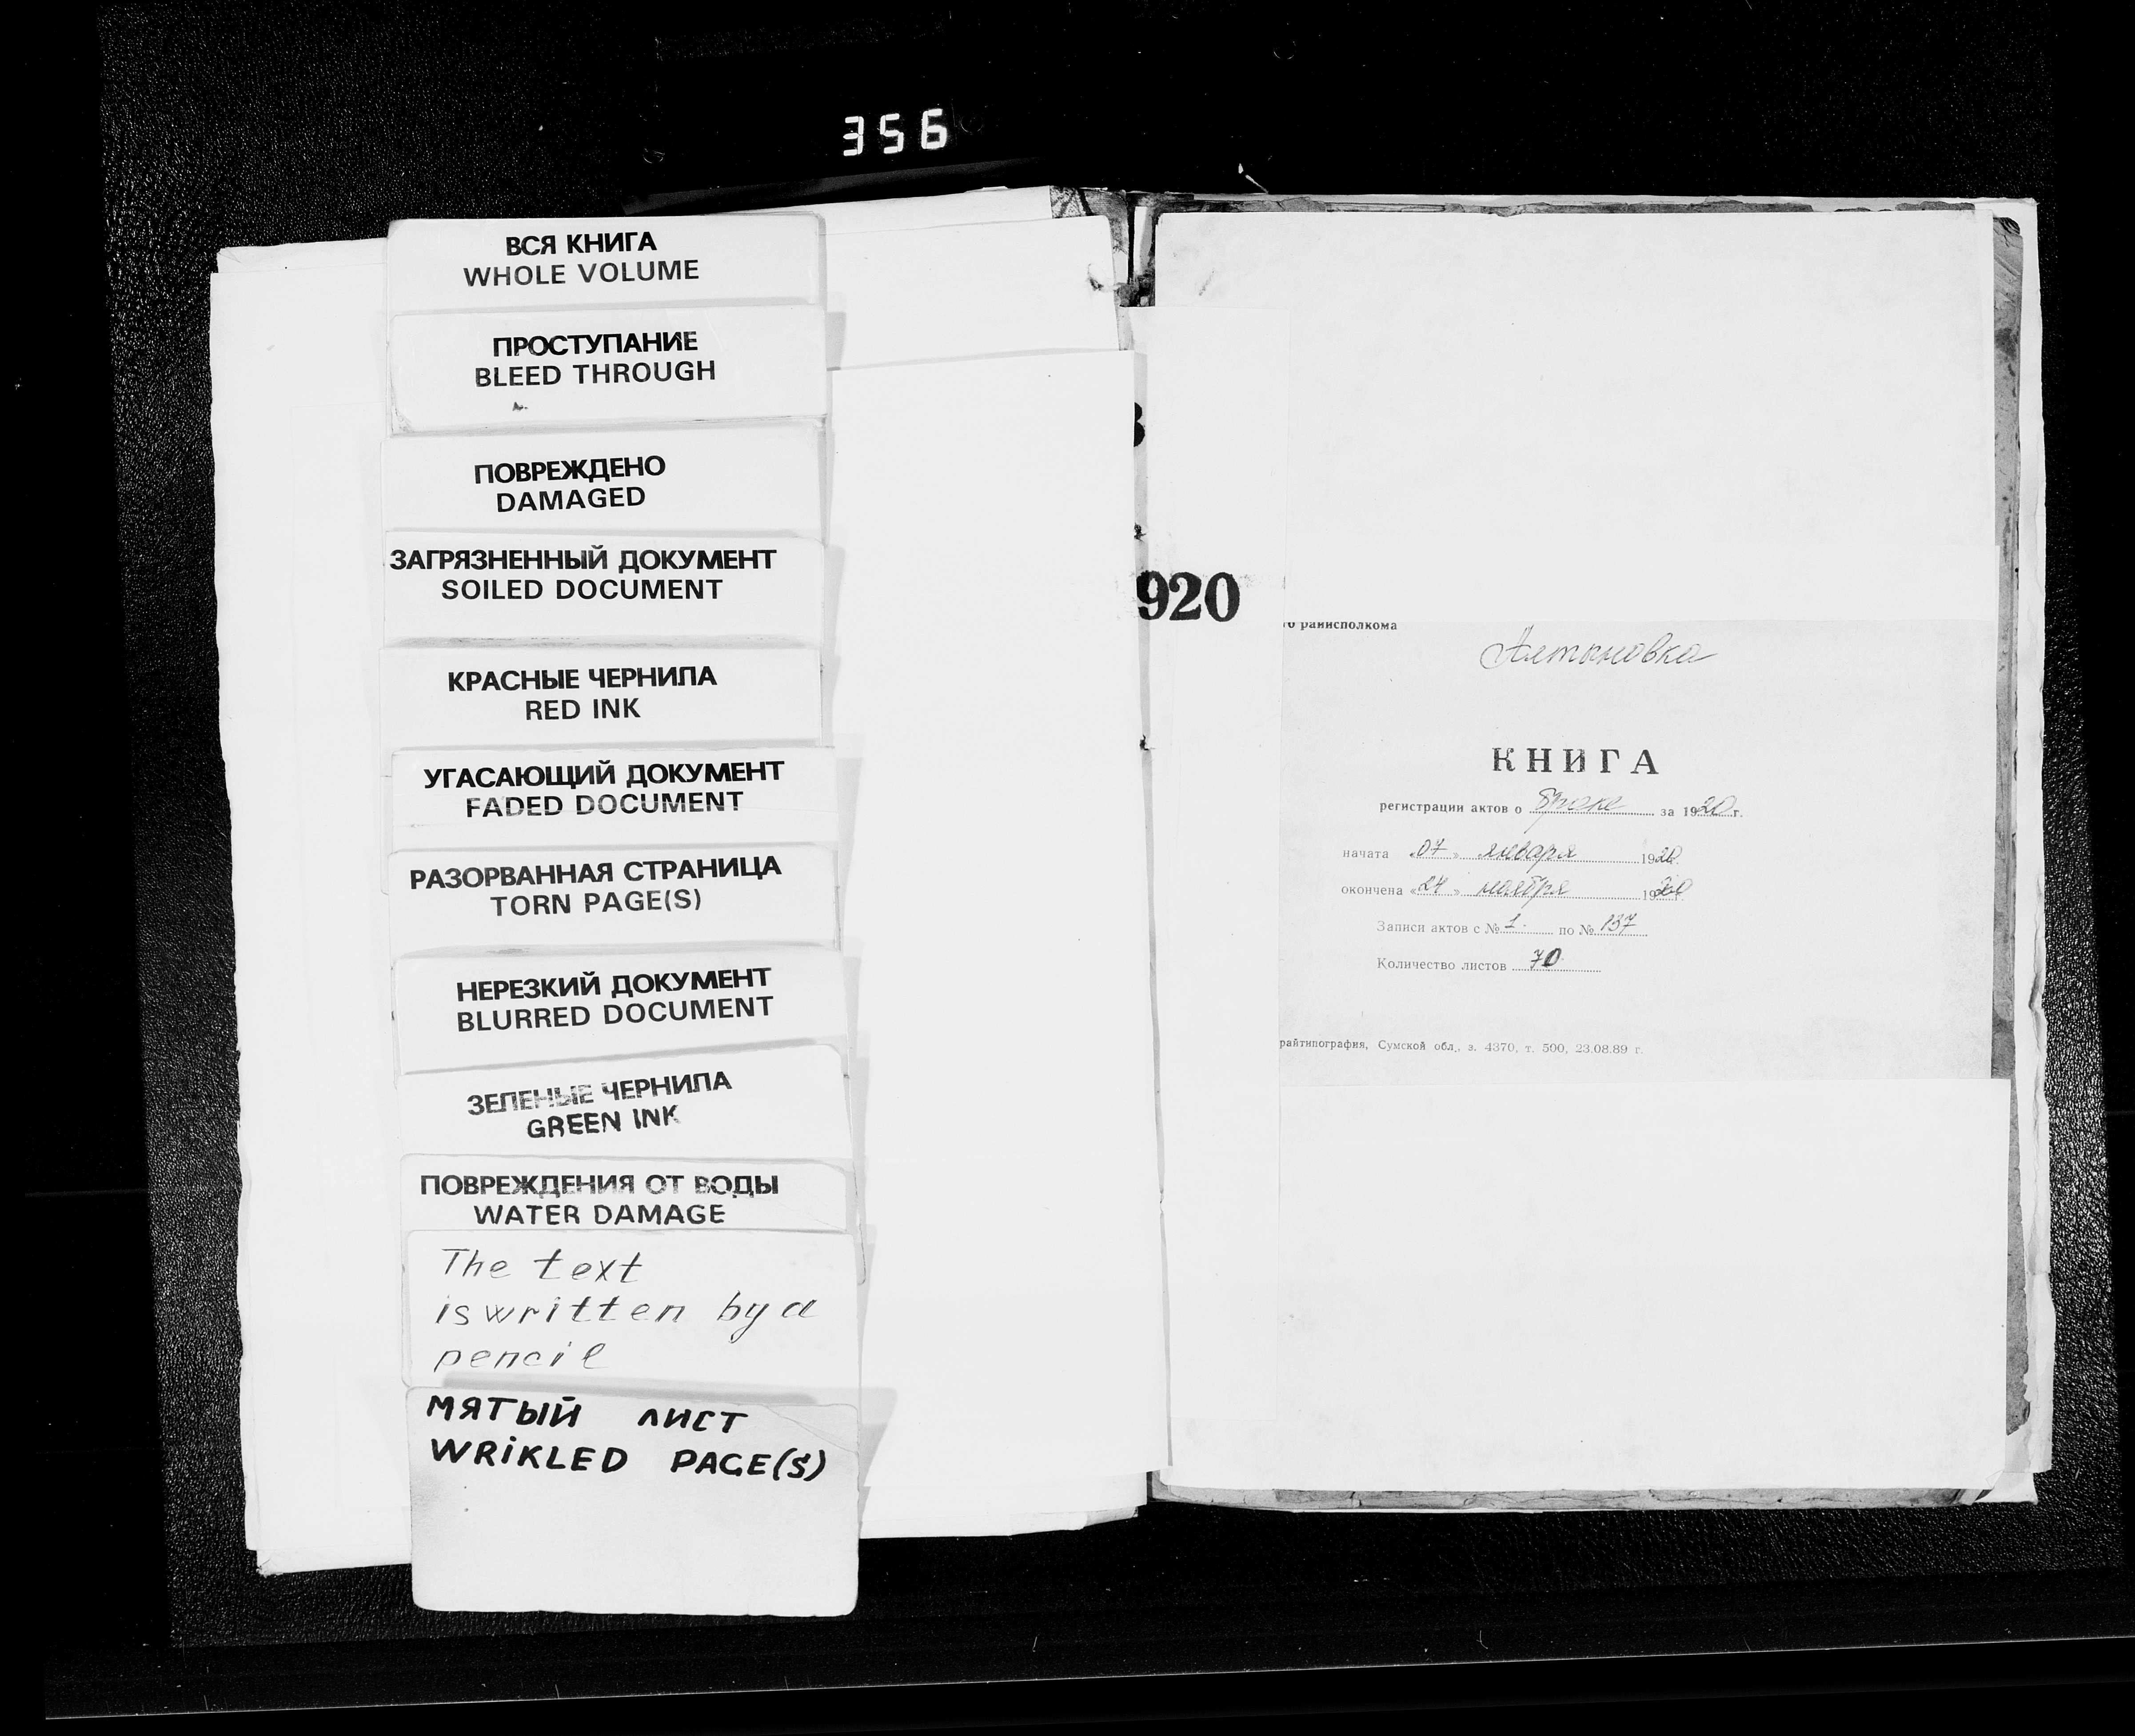 356
ВСЯ КНИГА
WHOLE VOLUME
ПРОСТУПАНИЕ
BLEED THROUGH
ПОВРЕЖДЕНО
DAMAGED
ЗАГРЯЗНЕННЫЙ ДОКУМЕНТ
SOILED DOCUMENT
КРАСНЫЕ ЧЕРНИЛА
RED INK
УГАСАЮЩИЙ ДОКУМЕНТ
FADED DOCUMENT
РАЗОРВАННАЯ СТРАНИЦА
TORN PAGE(S)
НЕРЕЗКИЙ ДОКУМЕНТ
BLURRED DOCUMENT
ЗЕЛЕНЫЕ ЧЕРНИЛА
GREEN INK
ПОВРЕЖДЕНИЯ ОТ ВОДЫ
WATER DAMAGE
The text
is written by a
pencil
МЯТЫЙ ЛИСТ
WRIKLED PAGE(S)
920
го райисполкома
Алтыновка
КНИГА
регистрации актов о браке за 1920 г.
начата «07» января 1920
окончена «24» ноября 1920
Записи актов с № 1. по № 137
Количество листов 70
райтипография, Сумской обл., з. 4370, т. 500, 23.08.89 г.